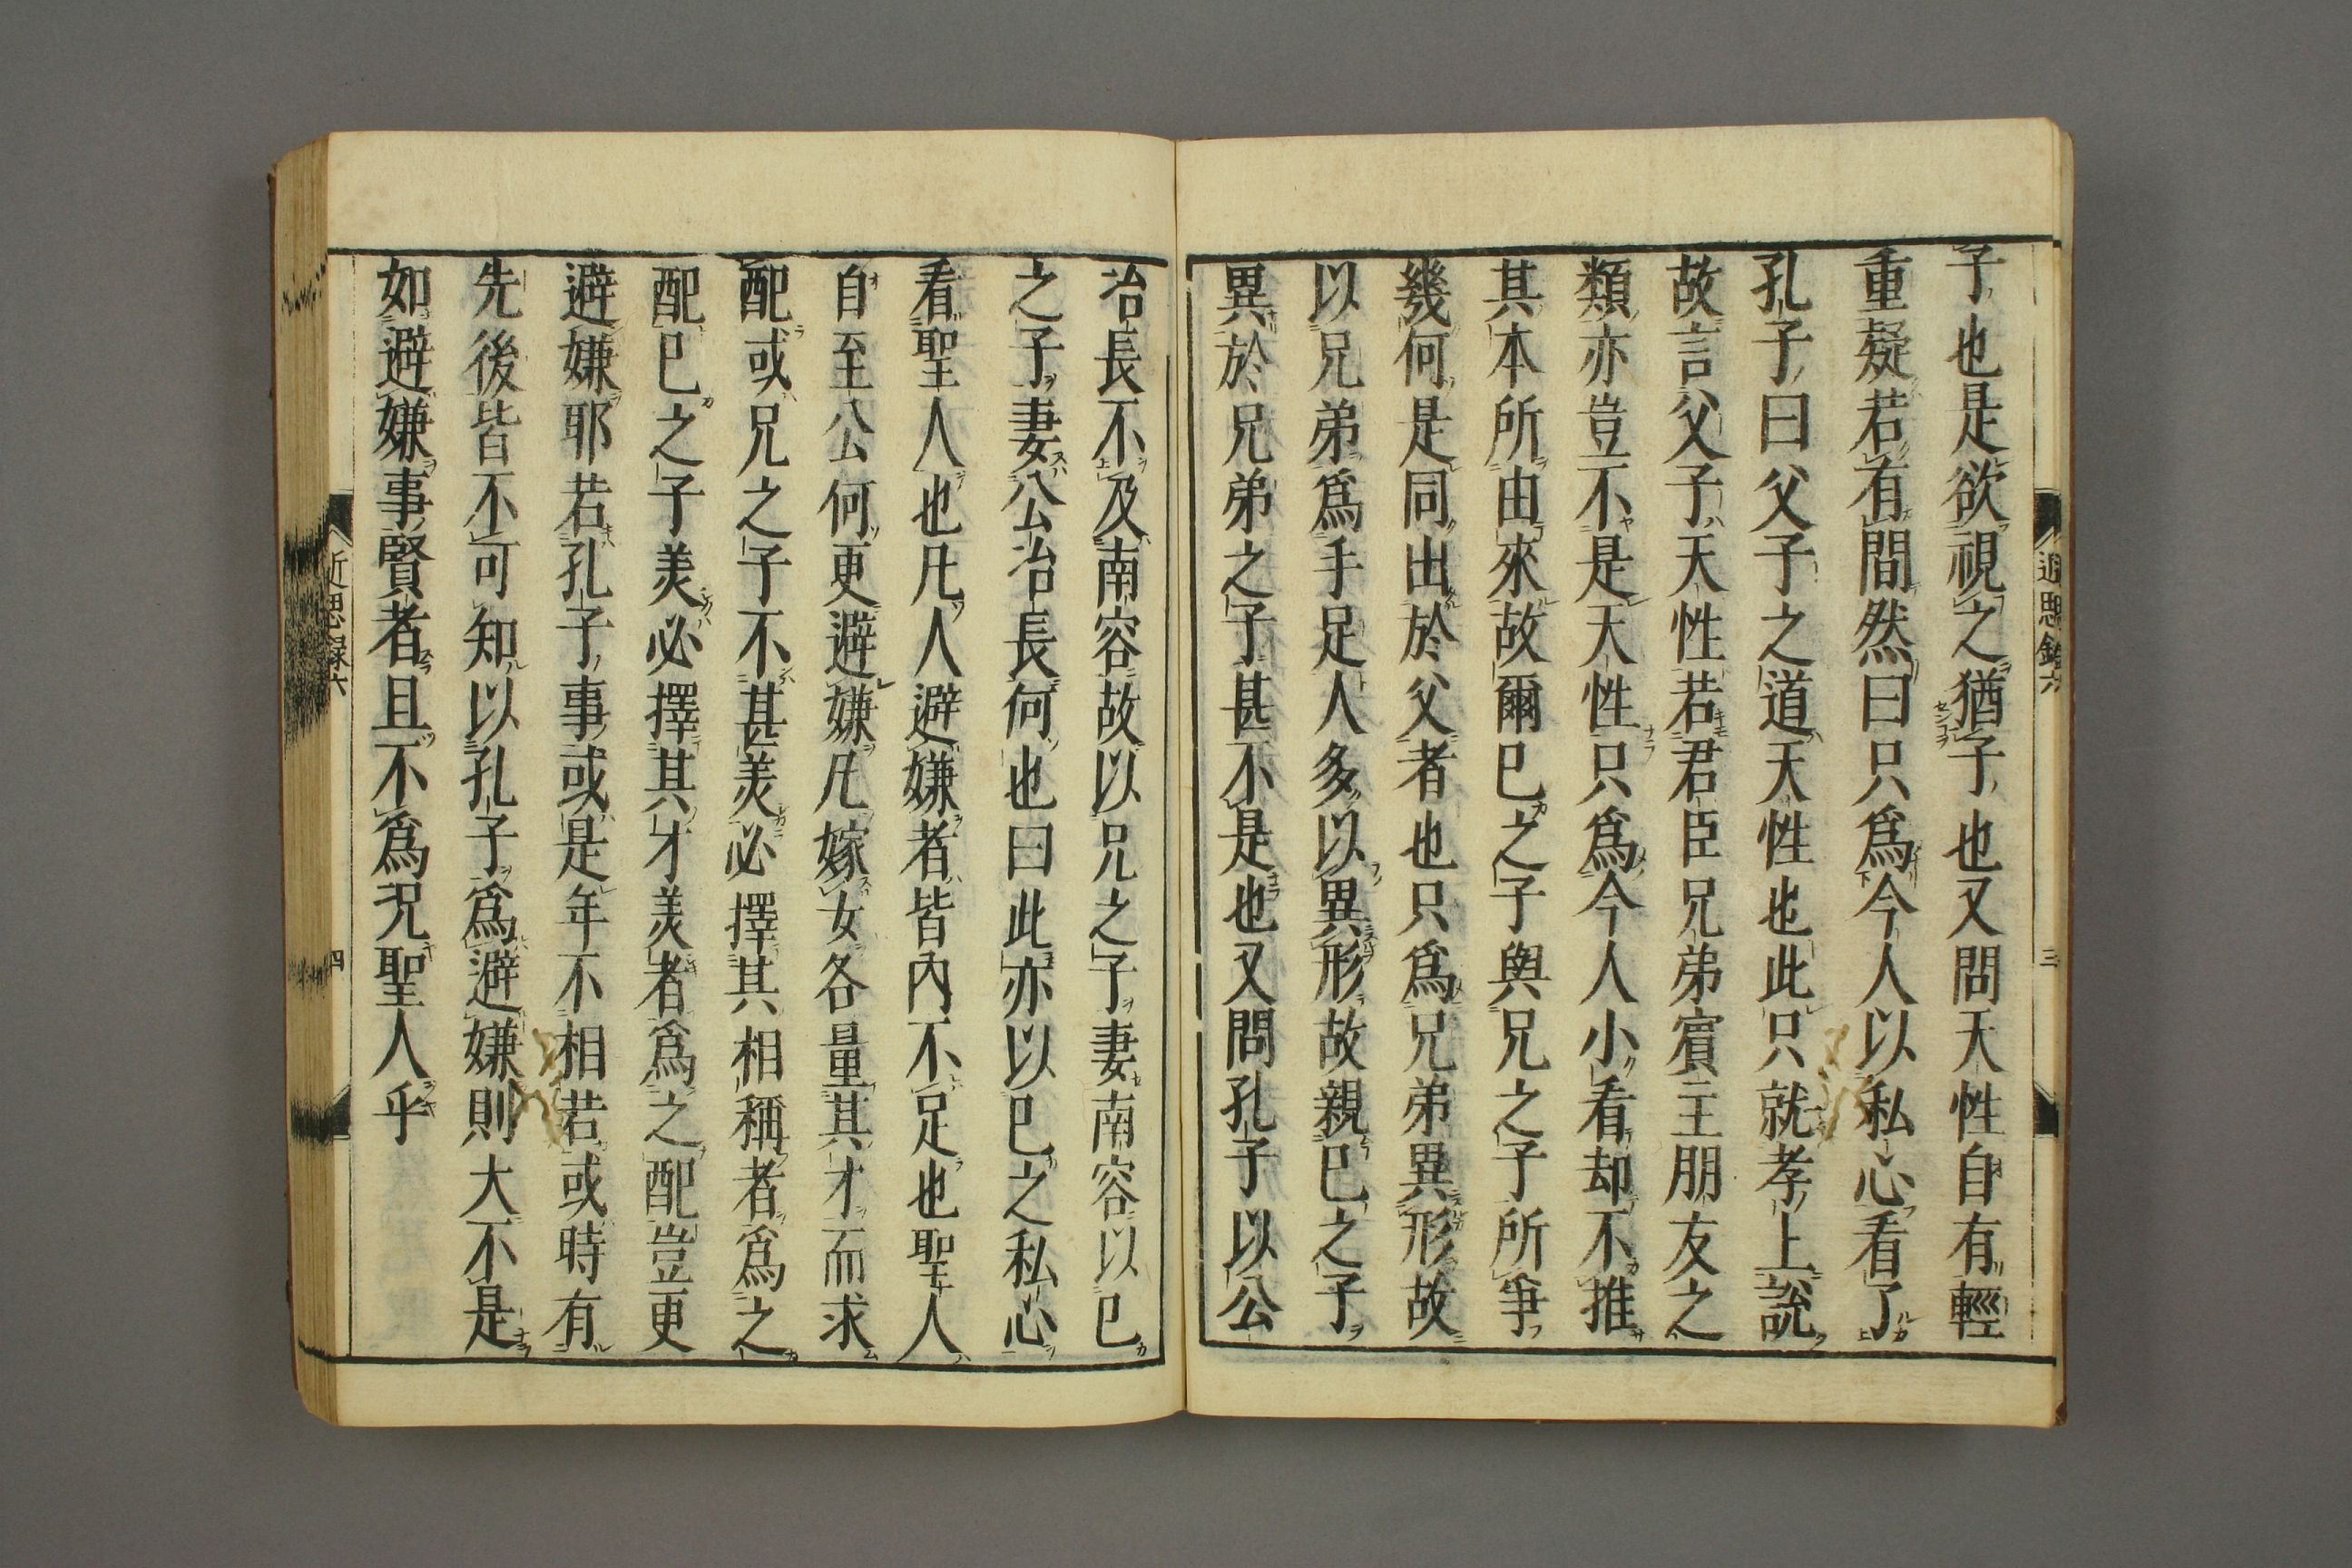 近思錄六
三
子也是欲視之猶子也又問天性自有輕
重疑若有間然曰只爲今人以私心看了
孔子曰父子之道天性也此只就孝上說
故言父子天性若君臣兄弟賔主朋友之
類亦豈不是天性只爲今人小看却不推
其本所由來故爾已之子與兄之子所爭
幾何是同出於父者也只爲兄弟異形故
以兄弟爲手足人多以異形故親已之子
異於兄弟之子甚不是也又問孔子以公
冶長不及南容故以兄之子妻南容以已
之子妻公冶長何也曰此亦以已之私心
看聖人也凡人避嫌者皆內不足也聖人
自至公何更避嫌凡嫁女各量其才而求
配或兄之子不甚美必擇其相稱者爲之
配已之子美必擇其才美者爲之配豈更
避嫌耶若孔子事或是年不相若或時有
先後皆不可知以孔子爲避嫌則大不是
如避嫌事賢者且不爲況聖人乎
近思錄六
四